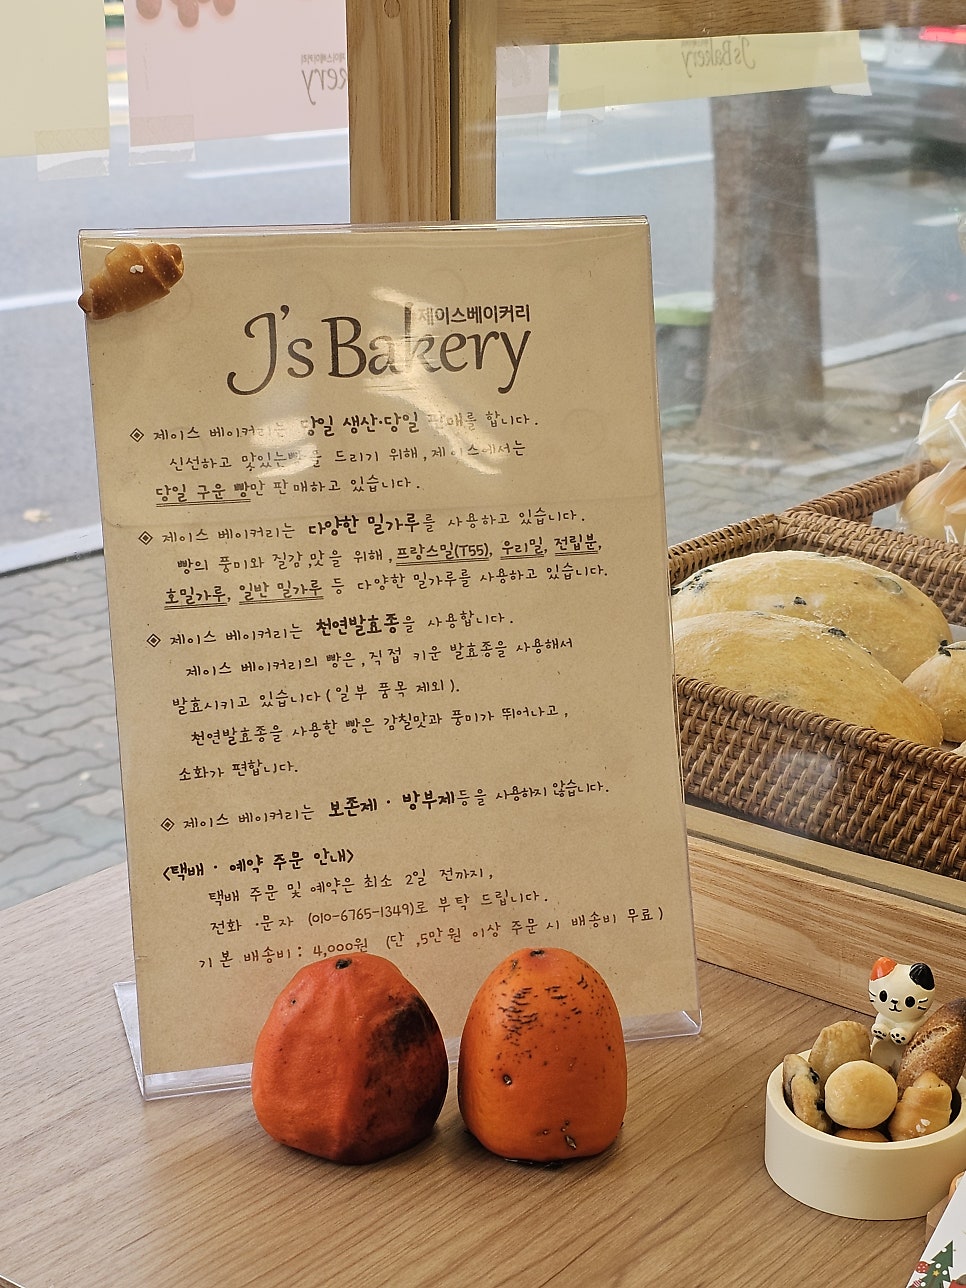 제이스베이커리
J's Bakery
◈ 제이스 베이커리는 당일 생산·당일 판매를 합니다.
신선하고 맛있는빵을 드리기 위해, 제이스에서는
당일 구운 빵만 판매하고 있습니다.
◈ 제이스 베이커리는 다양한 밀가루를 사용하고 있습니다.
빵의 풍미와 질감,맛을 위해, 프랑스밀(T55), 우리밀, 전립분,
호밀가루, 일반 밀가루 등 다양한 밀가루를 사용하고 있습니다.
◈ 제이스 베이커리는 천연발효종을 사용합니다.
제이스 베이커리의 빵은, 직접 키운 발효종을 사용해서
발효시키고 있습니다(일부 품목 제외).
천연발효종을 사용한 빵은 감칠맛과 풍미가 뛰어나고,
소화가 편합니다.
◈ 제이스 베이커리는 보존제·방부제등을 사용하지 않습니다.
<택배·예약 주문 안내>
택배 주문 및 예약은 최소 2일 전까지,
전화·문자 (010-6765-1349)로 부탁 드립니다.
기본 배송비: 4,000원 (단,5만원 이상 주문 시 배송비 무료)
J's Bakery